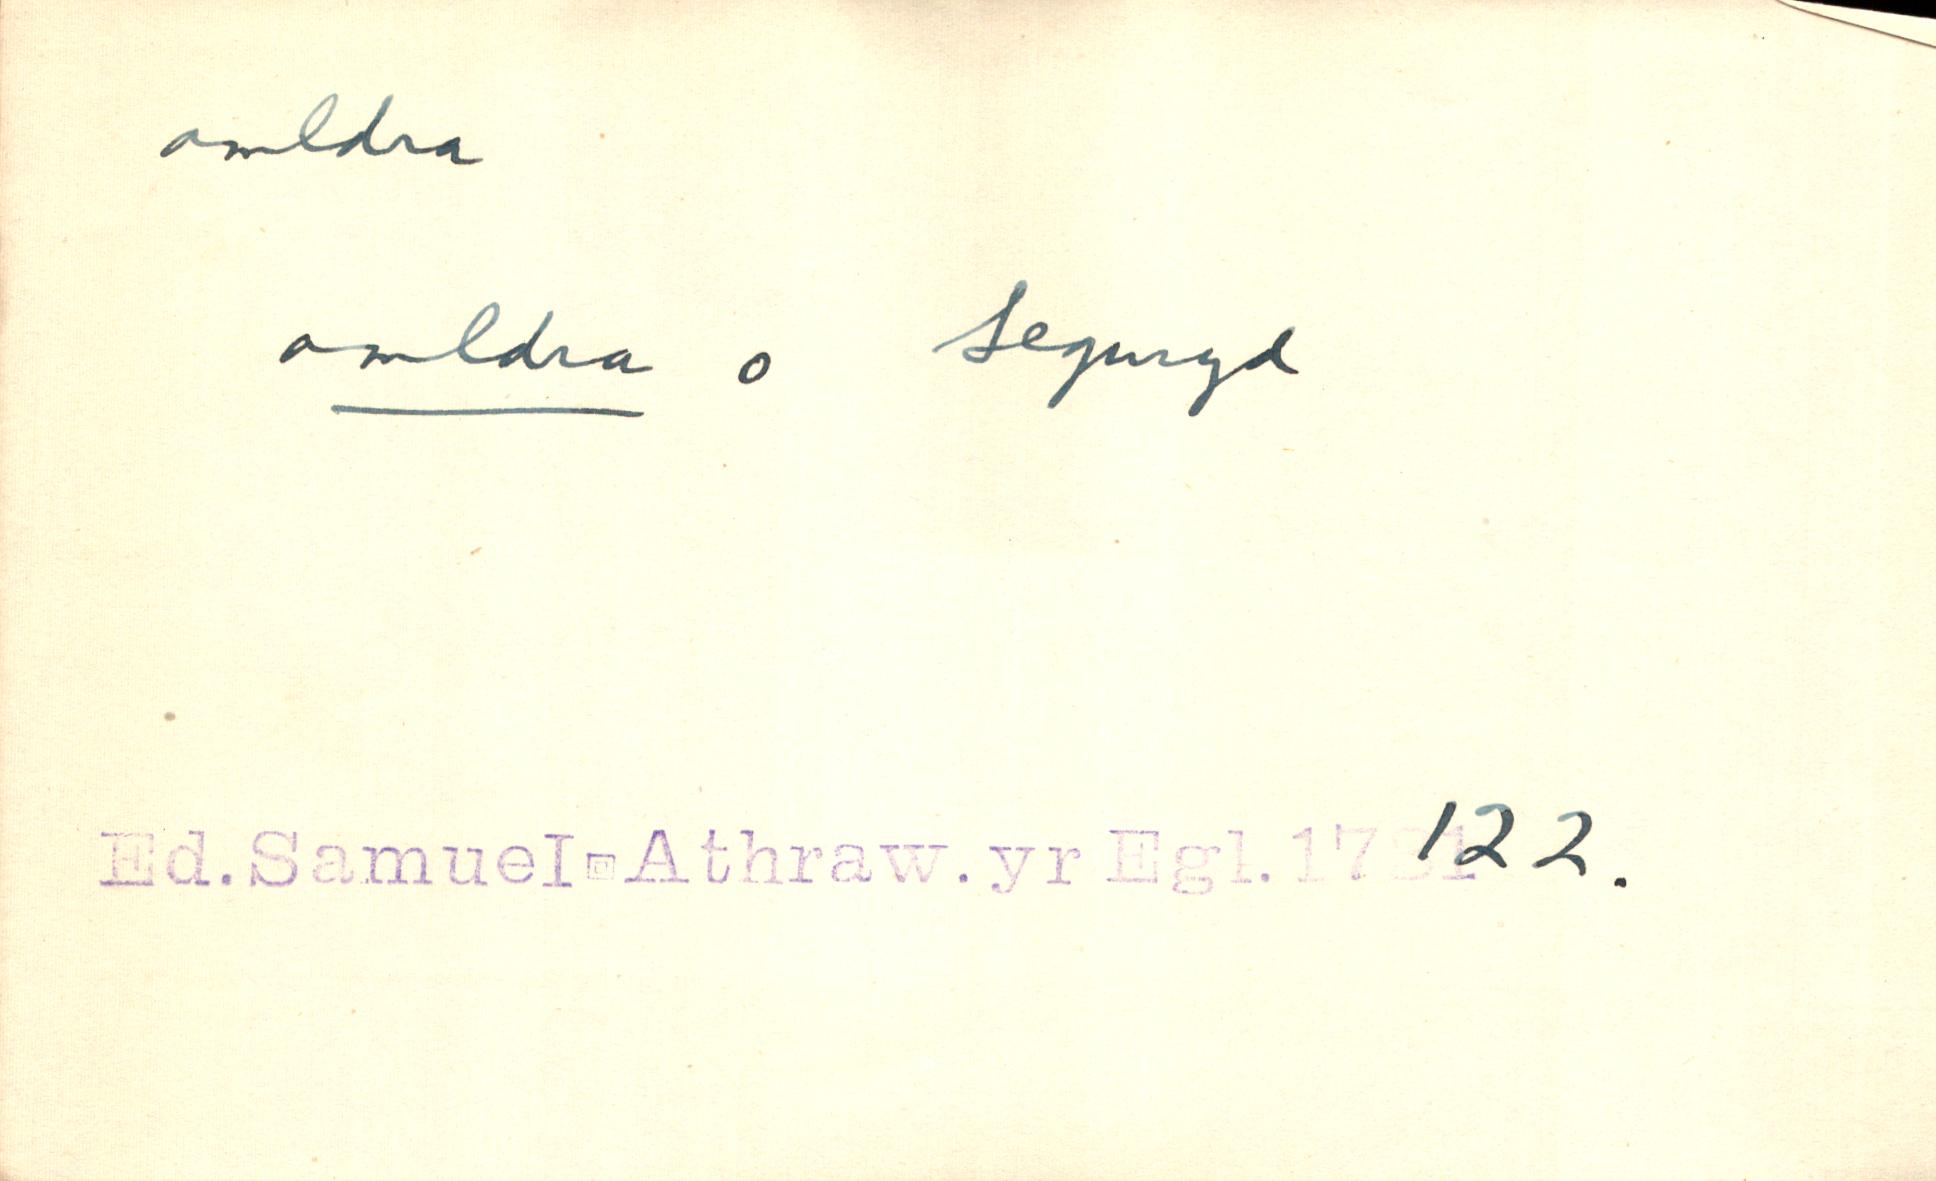 amldra
amldra o Seguryd
Ed. Samuel Athraw. yr Egl. 1731 122.